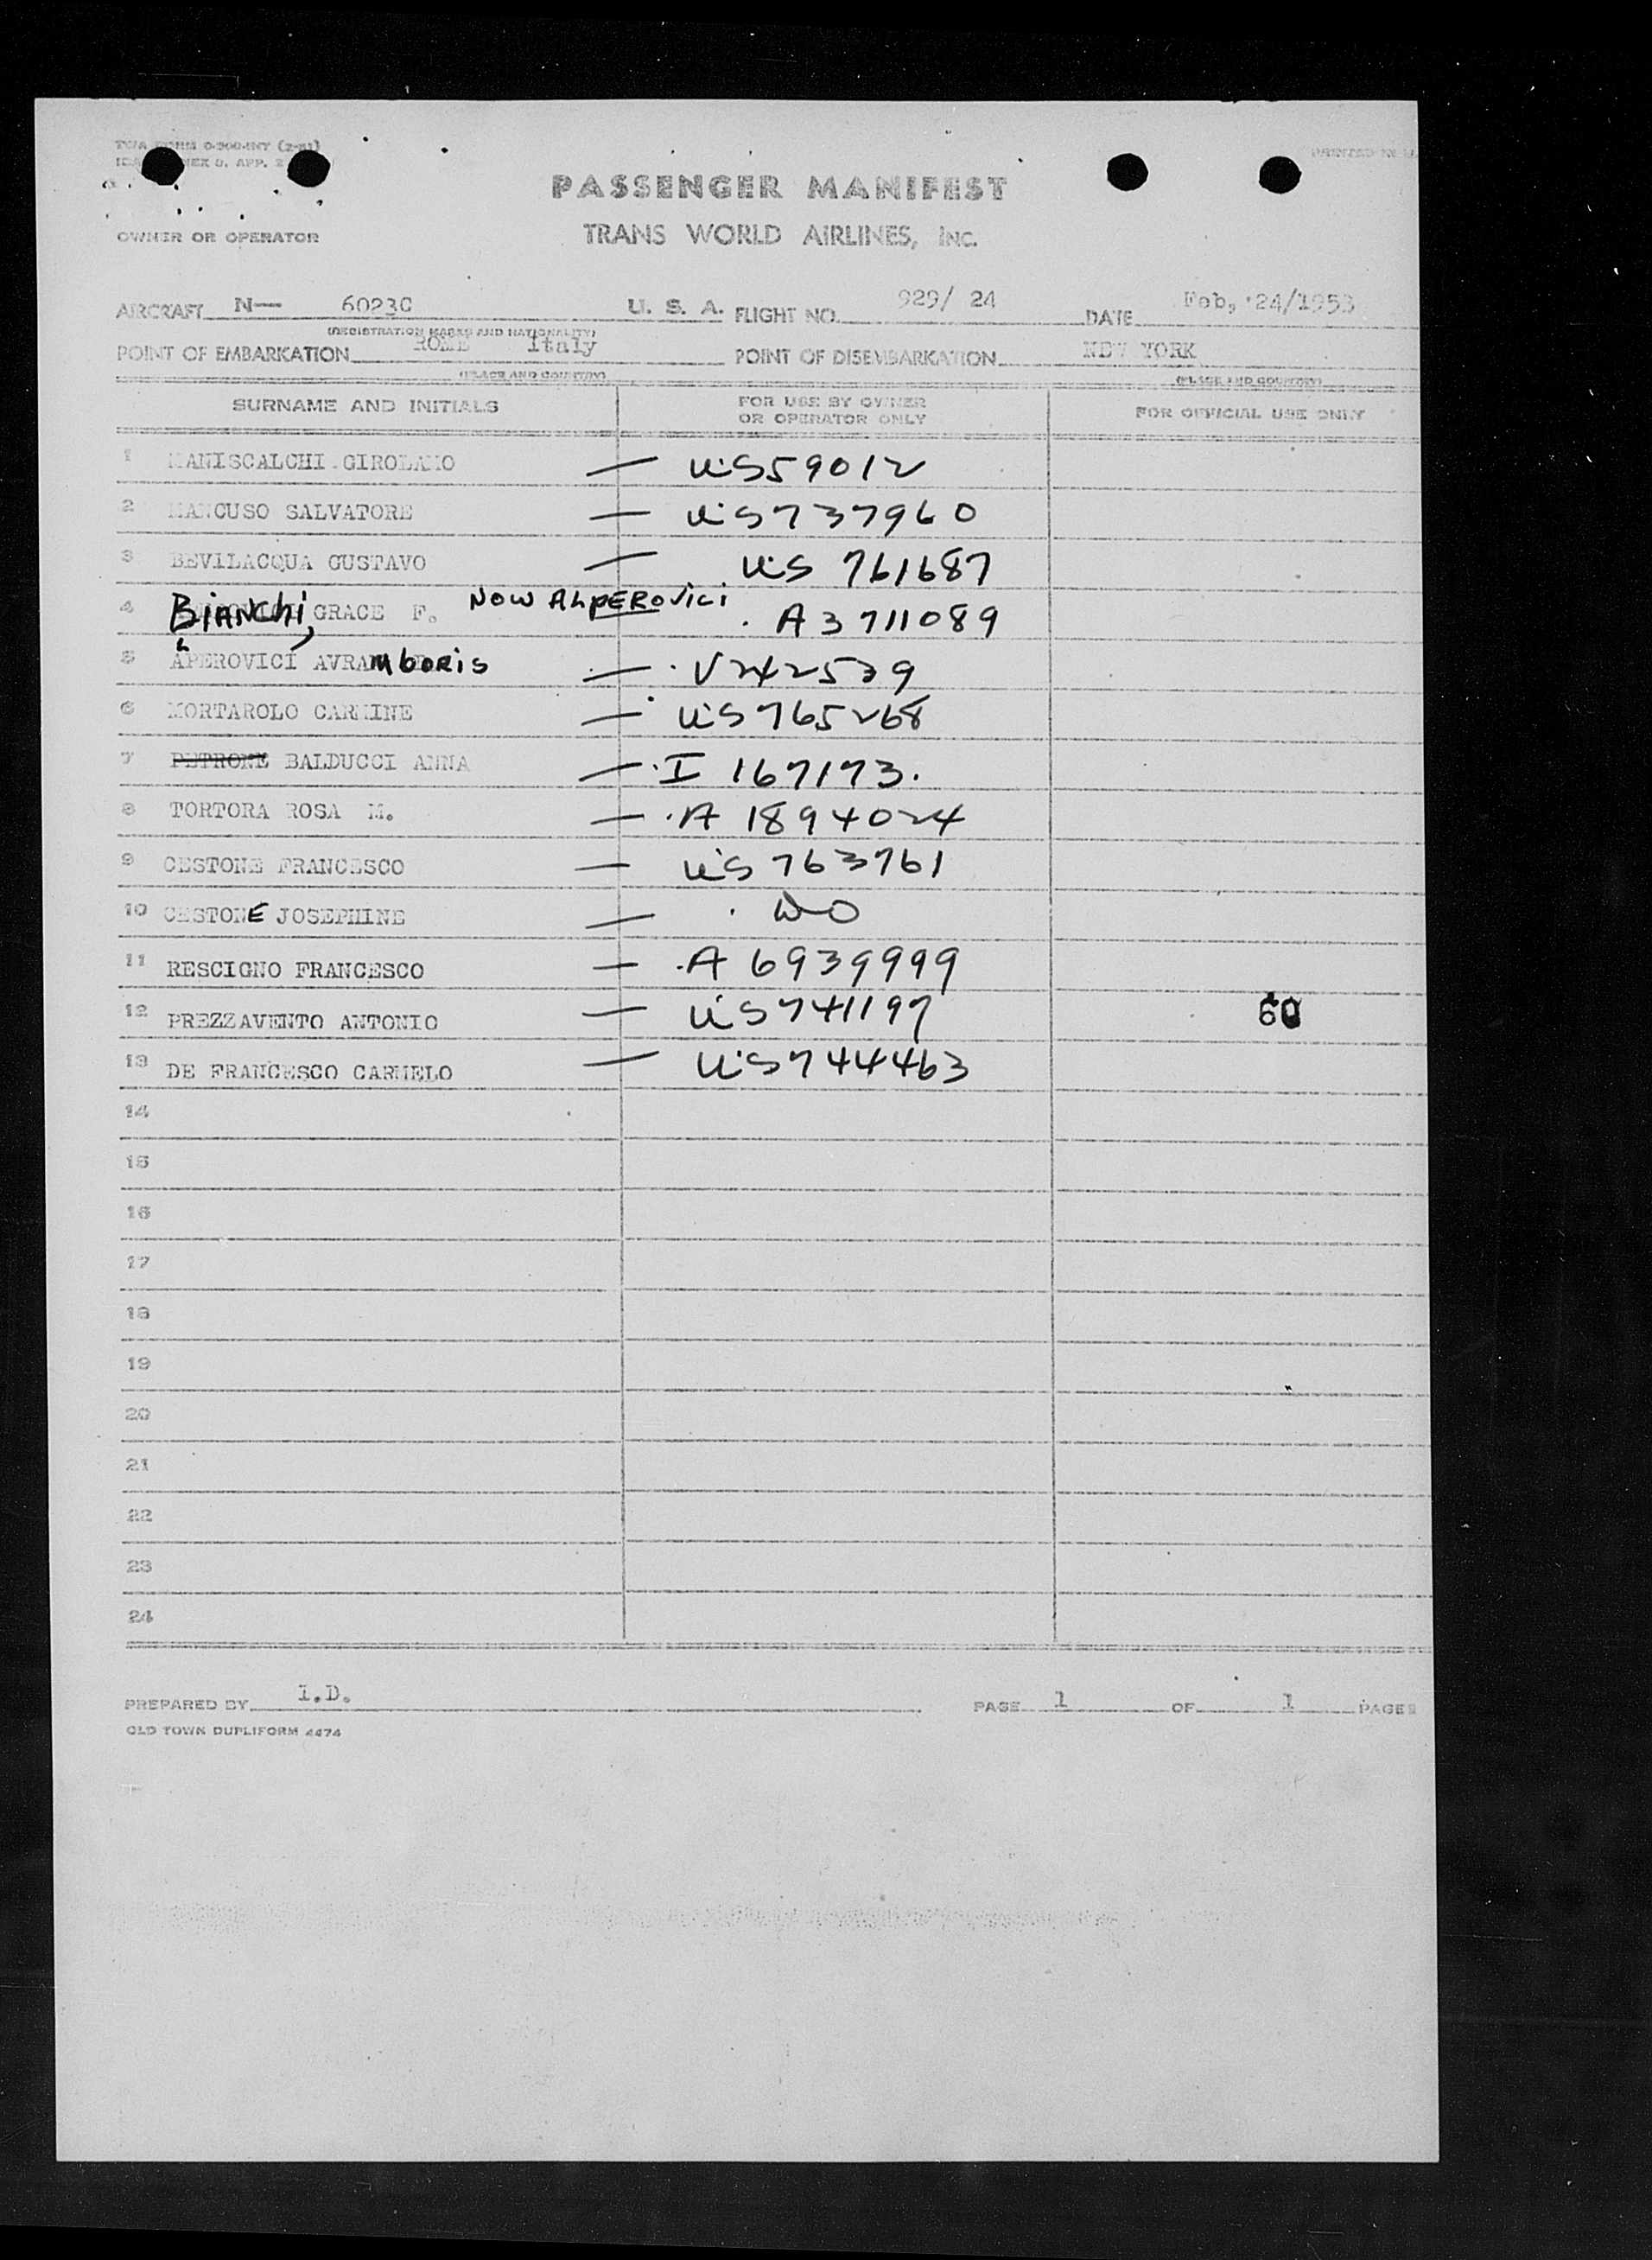 TWA FORM 0-300-INT (2-51)
PASSENGER MANIFEST
OWNER OR OPERATOR TRANS WORLD AIRLINES, INC.
AIRCRAFT N— 6023C U. S. A. FLIGHT NO. 929/ 24 DATE Feb, 24/1953
(REGISTRATION MARKS AND NATIONALITY)
POINT OF EMBARKATION ROME Italy POINT OF DISEMBARKATION NEW YORK
(PLACE AND COUNTRY) (PLACE AND COUNTRY)
SURNAME AND INITIALS FOR USE BY OWNER OR OPERATOR ONLY FOR OFFICIAL USE ONLY
1 MANISCALCHI GIROLAMO — US59012
2 MANCUSO SALVATORE — US737960
3 BEVILACQUA GUSTAVO — US 761687
4 BiANChi, GRACE F. NOW ALPEROVici A3711089
5 APEROVICI AVRAM bORis — V242539
6 MORTAROLO CARMINE — US765268
7 PETRONE BALDUCCI ANNA — I 167173.
8 TORTORA ROSA M. — A 1894024
9 CESTONE FRANCESCO — US 763761
10 CESTONE JOSEPHINE — DO
11 RESCIGNO FRANCESCO — A 6939999
12 PREZZAVENTO ANTONIO — US741197
13 DE FRANCESCO CARMELO — US744463
14
15
16
17
18
19
20
21
22
23
24
PREPARED BY I.D. PAGE 1 OF 1 PAGES
OLD TOWN DUPLIFORM 4474